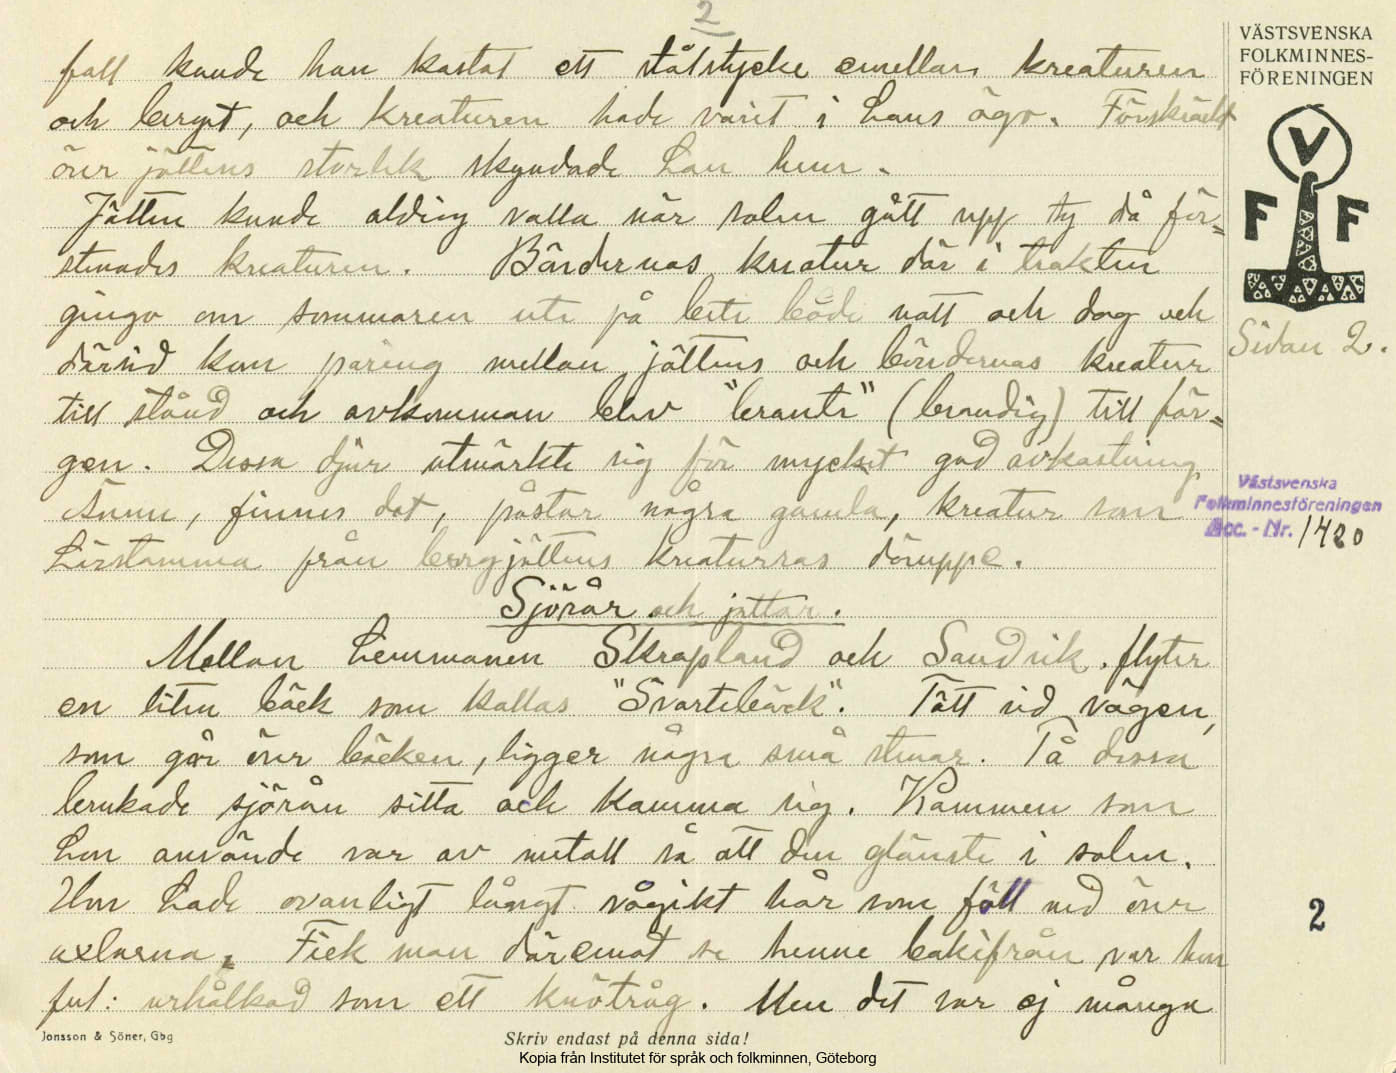 2
VÄSTSVENSKA
FOLKMINNES-
FÖRENINGEN
V
F F
fall kunde han kastat ett stålstycke emellan kreaturen
och berget, och kreaturen hade varit i hans ägo. Förskräckt
över jättens storlek skyndade han hem.
Jätten kunde aldrig valla när solen gått upp ty då för-
stenades kreaturen. Böndernas kreatur där i trakten
gingo om sommaren ute på bete både natt och dag och
därvid kom paring mellan jättens och böndernas kreatur
till stånd och avkomman blev "brante" (brandig) till fär-
gen. Dessa djur utmärkte sig för mycket god avkastning.
Ännu, finnes det, påstar några gamla, kreatur som
härstamma från bergjättens kreatursras däruppe.
Sjörår och jättar.
Mellan hemmanen Skrapland och Sandvik flyter
en liten bäck som kallas "Svartebäck". Tätt vid vägen,
som går över bäcken, ligger några små stenar. På dessa
brukade sjörån sitta och kamma sig. Kammen som
hon använde var av metall så att den glänste i solen.
Hon hade ovanligt långt vågikt hår som föll ned över
axlarna. Fick man däremot se henne bakifrån var hon
ful: urhålkad som ett knötråg. Men det var ej många
Sidan 2.
Västsvenska
Folkminnesföreningen
Acc. - Nr. 1420
2
Jonsson & Söner, Gbg
Skriv endast på denna sida!
Kopia från Institutet för språk och folkminnen, Göteborg